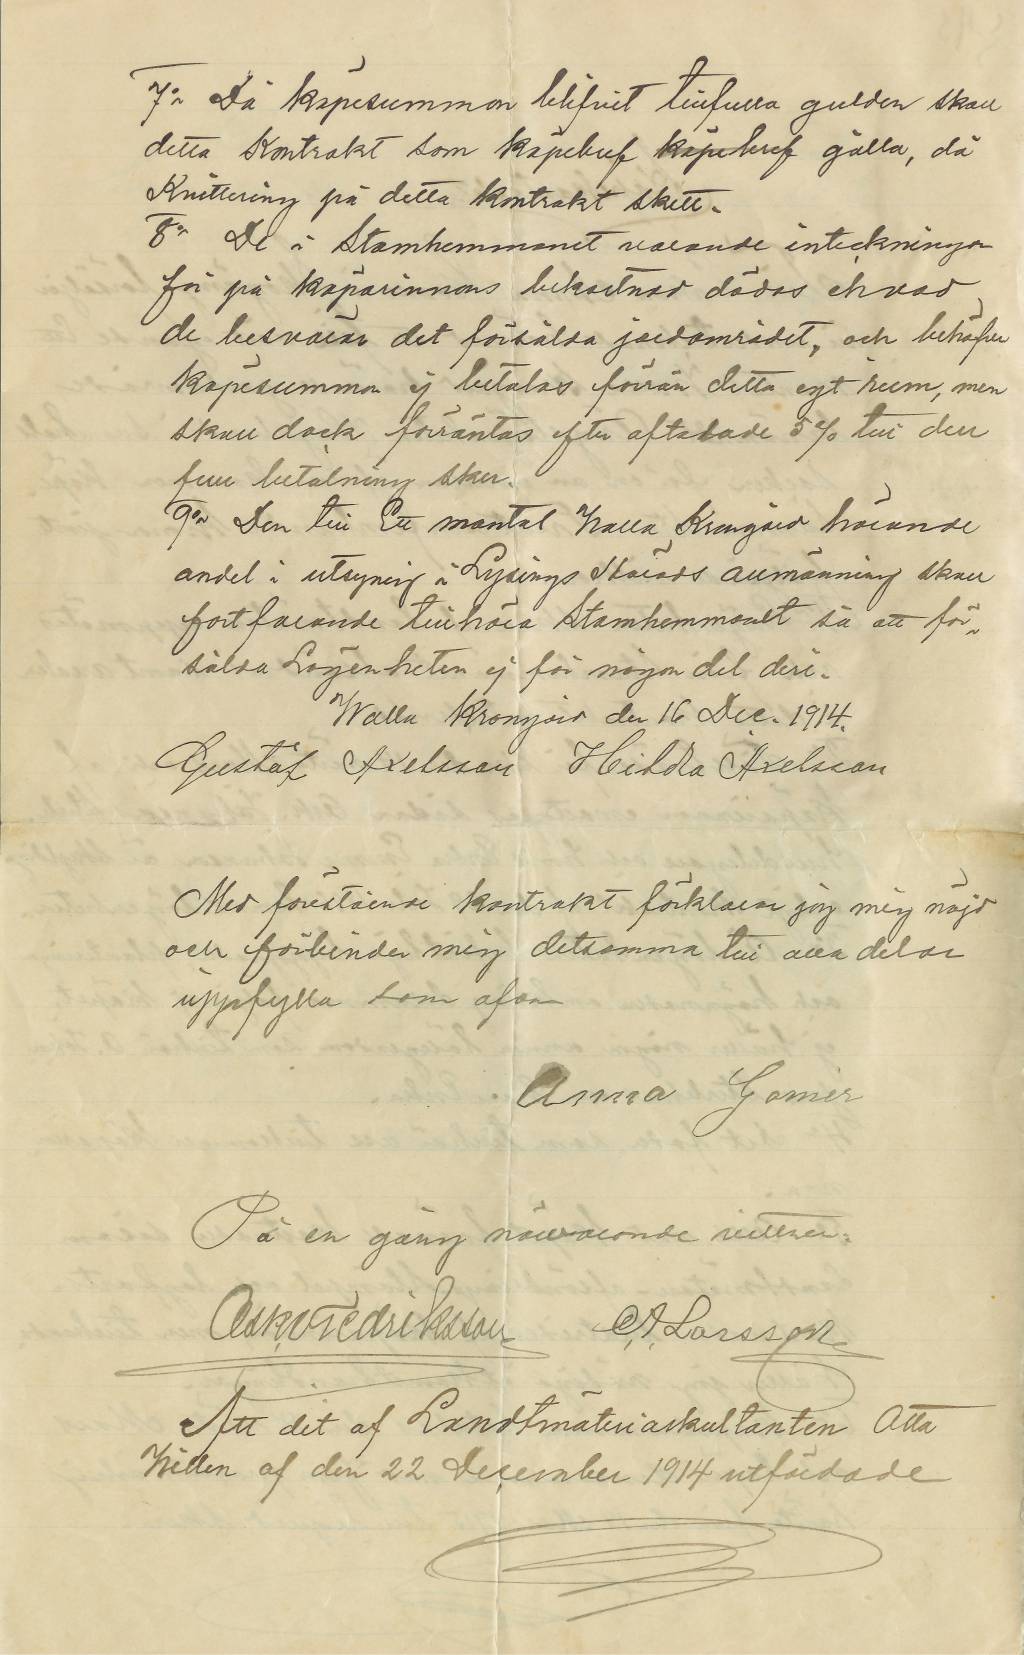 7:o Då köpesumman blifvit tillfullo gulden skall
detta Kontrakt som köpebref köpebref gälla, då
Kvittering på detta kontrakt skett.
8:o De i Stamhemmanet varande inteckningar
får på köparinnans bekostnad dödas ehvad
de besvärar det försålda jordområdet, och behöfver
köpesumman ej betalas förrän detta egt rum, men
skall dock förräntas efter aftalade 5% till dess
full betalning sker.
9:o Den till Ett mantal Walla Krongård hörande
andel i utsyning i Lysings Härads allmänning skall
fortfarande tillhöra Stamhemmanet så att för-
sålda Lägenheten ej får någon del deri.
Walla Krongård den 16 Dec. 1914.
Gustaf Axelsson Hilda Axelsson
Med förestående kontrakt förklarar jag mig nöjd
och förbinder mig detsamma till alla delar
uppfylla som ofvan
Anna Gomér
På en gång närvarande vittnen:
Osk. Fredriksson C.A. Larsson
Att det af Landtmäteriauskultanten Otto
af den 22 December 1914 utfördade